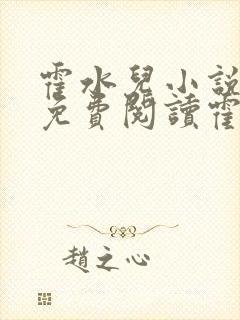 霍水兒小說
免費閱讀霍
趙之心